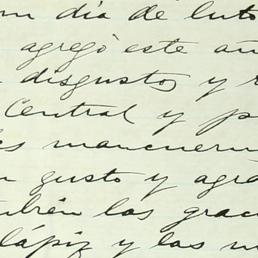 un día de luto
agregó este añ
disgustos y r
Central y p
mancuern
gusto y agra
mbién las grac
lápiz y las m